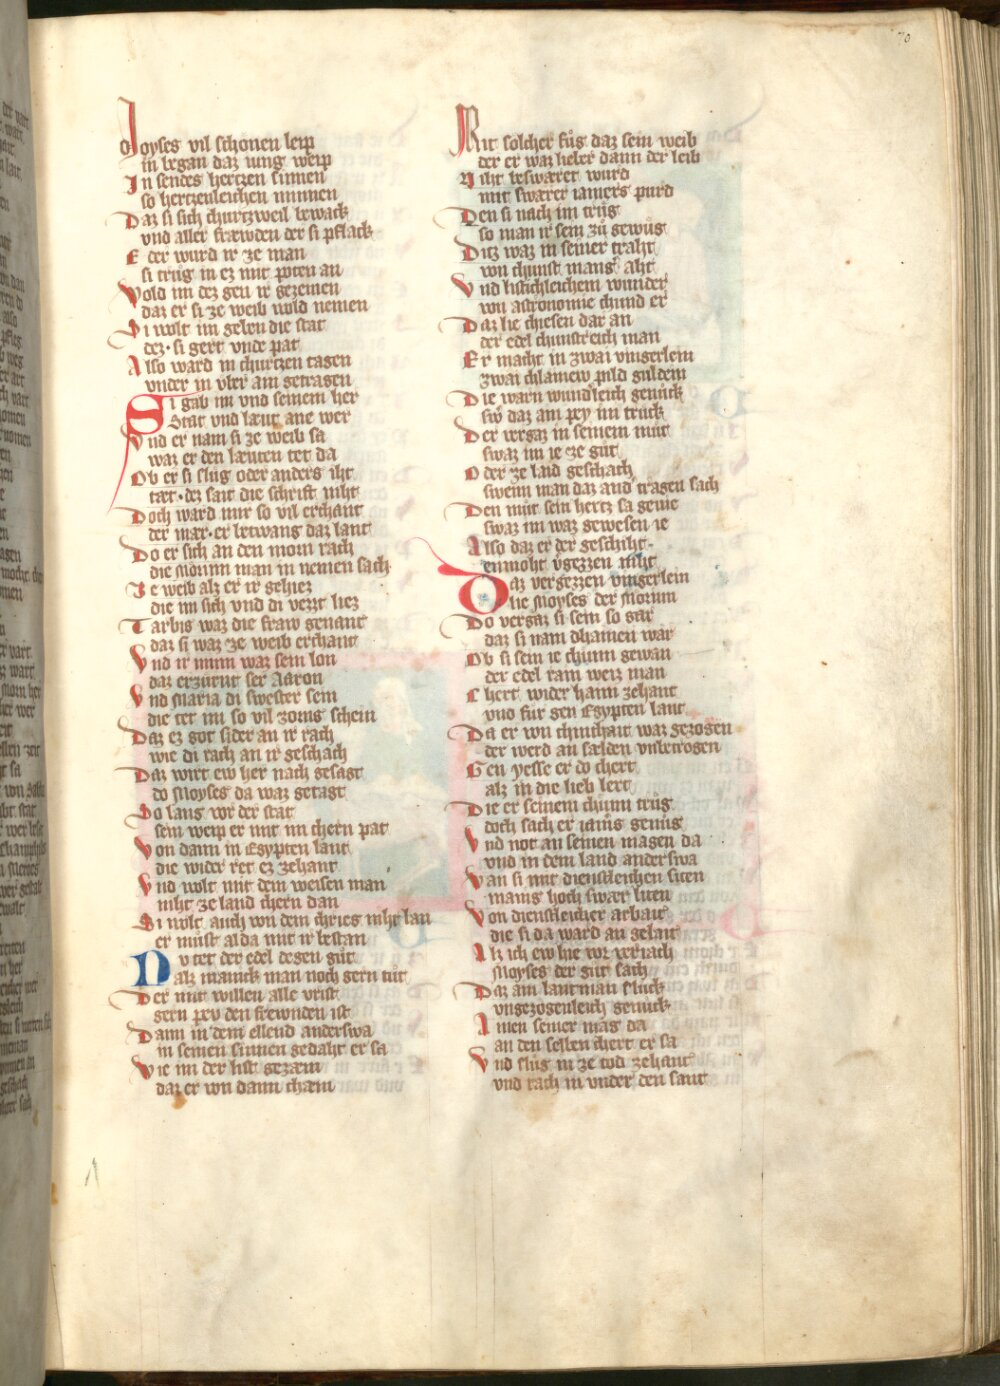 70
Moyses vil schönen leip
in began daz iung weip
In sendes hertzen sinnen
so hertzenleichen minnen
Daz si sich churtzweil bewack
vnd aller fræwden der si pflack
Er der wurd ir ze man
si trug in ez mit poten an
Wold im dez gen ir gezemen
daz er si ze weib wold nemen
Si wolt im geben die stat
dez si gert vnde pat
Also ward in churtzen tagen
vnder in vber ain getragen
Si gab im vnd seinem her
Stat vnd læut ane wer
Vnd er nam si ze weib sa
waz er den læuten tet da
Ob er si slůg oder anders iht
tæt dez sait die schrift niht
Doch ward mir so vil erchant
der mær er betwang daz lant
Do er sich an den morn rach
die Mörinn man in nemen sach
Ze weib alz er ir gehiez
die im sich vnd di vezzt liez
Tarbis waz die fraw genant
daz si waz ze weib erchant
Vnd ir minn waz sein lon
daz erzürnt ser Aaron
Vnd Maria di swester sein
die tet im so vil zorns schein
Daz ez got sider an ir rach
wie di rach an ir geschach
Daz wirt ew her nach gesagt
do Moyses da waz getagt
So lang vor der stat
sein weip er mit im chern pat
Von dann in Egypten lant
die wider ret ez zehant
Vnd wolt mit dem weisen man
niht ze land chern dan
Si wolt auch von dem chrieg niht lan
er müst alda mit ir bestan
Nv tet der edel degen gůt
alz manick man noch gern tůt
Der mit willen alle vrist
gern pey den frewnden ist
Dann in dem ellend anderswa
in seinen sinnen gedaht er sa
Wie im der list gezæm
daz er von dann chæm
Mit solcher fůg daz sein weib
der er waz lieber dann der leib
Niht beswæret wurd
mit swærer iamers purd
Den si nach im trüg
so man ir sein zů gewůg
Ditz waz in seiner traht
von chunst manger aht
Vnd listichleichem wunder
von astronomie chund er
Daz lie chiesen dar an
der edel chunstreich man
Er macht in zwai vingerlein
zwai chlainew pild guldein
Die warn wundleich genůck
swer daz ain pey im trück
Der vergaz in seinem můt
swaz im ie ze gůt
Oder ze laid geschach
swenn man daz ander tragen sach
Den můt sein hertz sa gevie
swaz im waz gewesen ie
Also daz er der geschiht
enmoht vergezzen niht
Daz vergezzen vingerlein
lie Moyses der Morinn
Do vergaz si sein so gar
daz si nam dhainen war
Ob si sein ie chünn gewan
der edel rain weiz man
Chert wider haim zehant
vnd für gen Egypten lant
Da er von chinthait waz gezogen
der werd an sælden vnbetrogen
Gen yesse er do chert
alz in die lieb lert
Die er seinem chünn trůg
doch sach er iamers genůg
Vnd not an seinen magen da
vnd in dem land anderswa
Wan si mit dienstleichen siten
manig hoch swær liten
Von dienstleicher arbait
die si da ward an gelait
Alz ich ew hie vor veriach
Moyses der gůt sach
Daz ain lantman slůck
vngezogenleich genůck
Ainen seiner mag da
an den selben chert er sa
Vnd slůg in ze tod zehant
vnd rach in vnder den sant